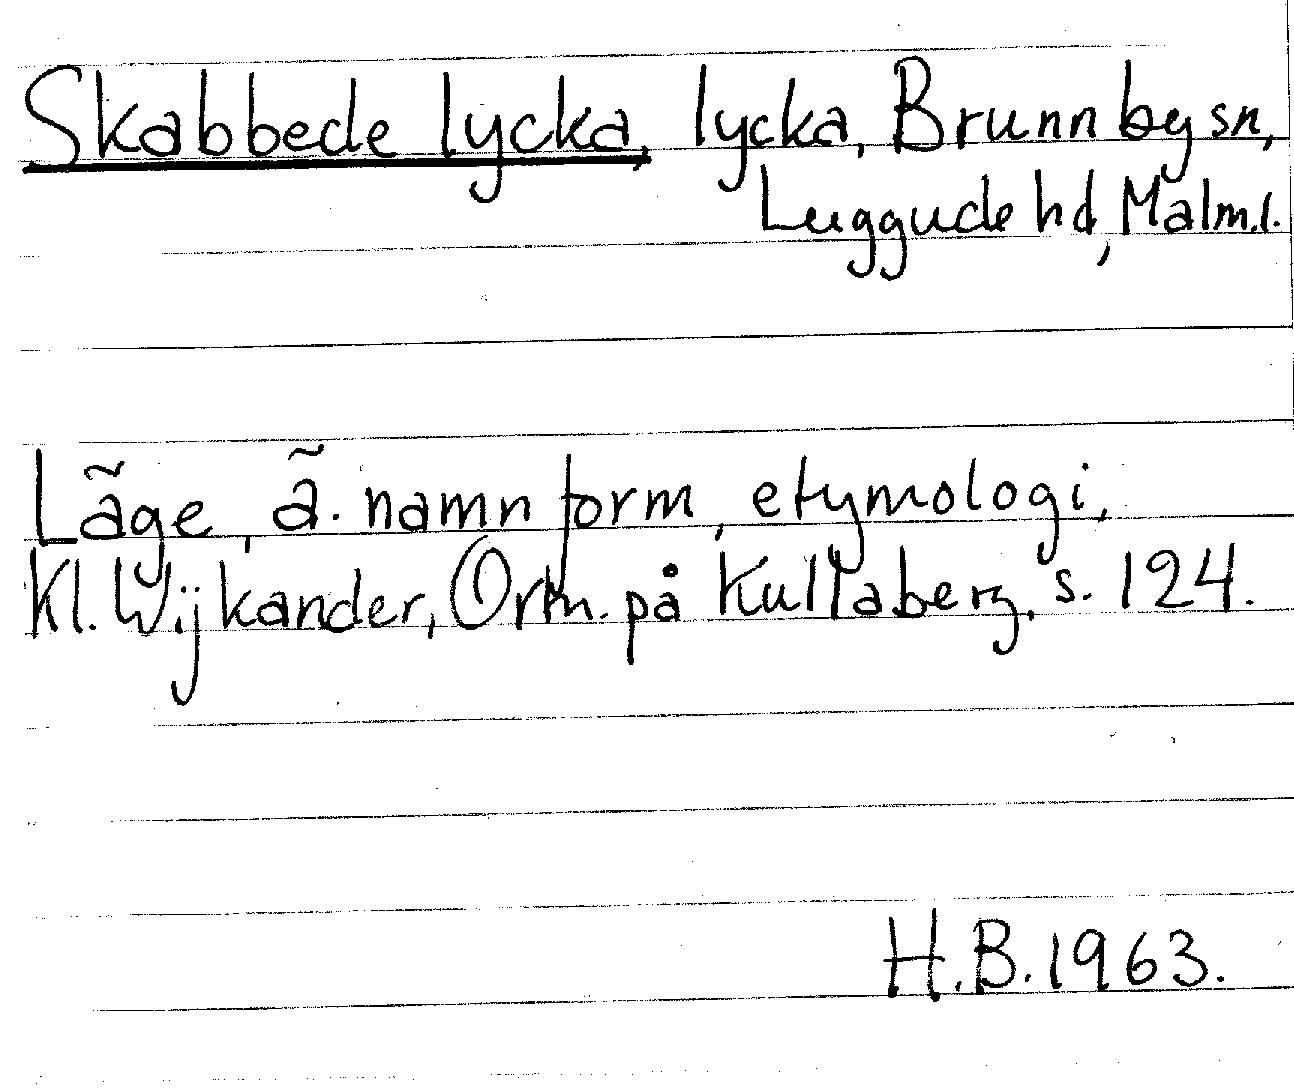 Skabbede lycka, lycka, Brunnby sn,
Luggude hd, Malm.l.
Läge, ä. namnform, etymologi,
Kl. Wijkander, Ortn. på Kullaberg, s. 124.
H.B. 1963.